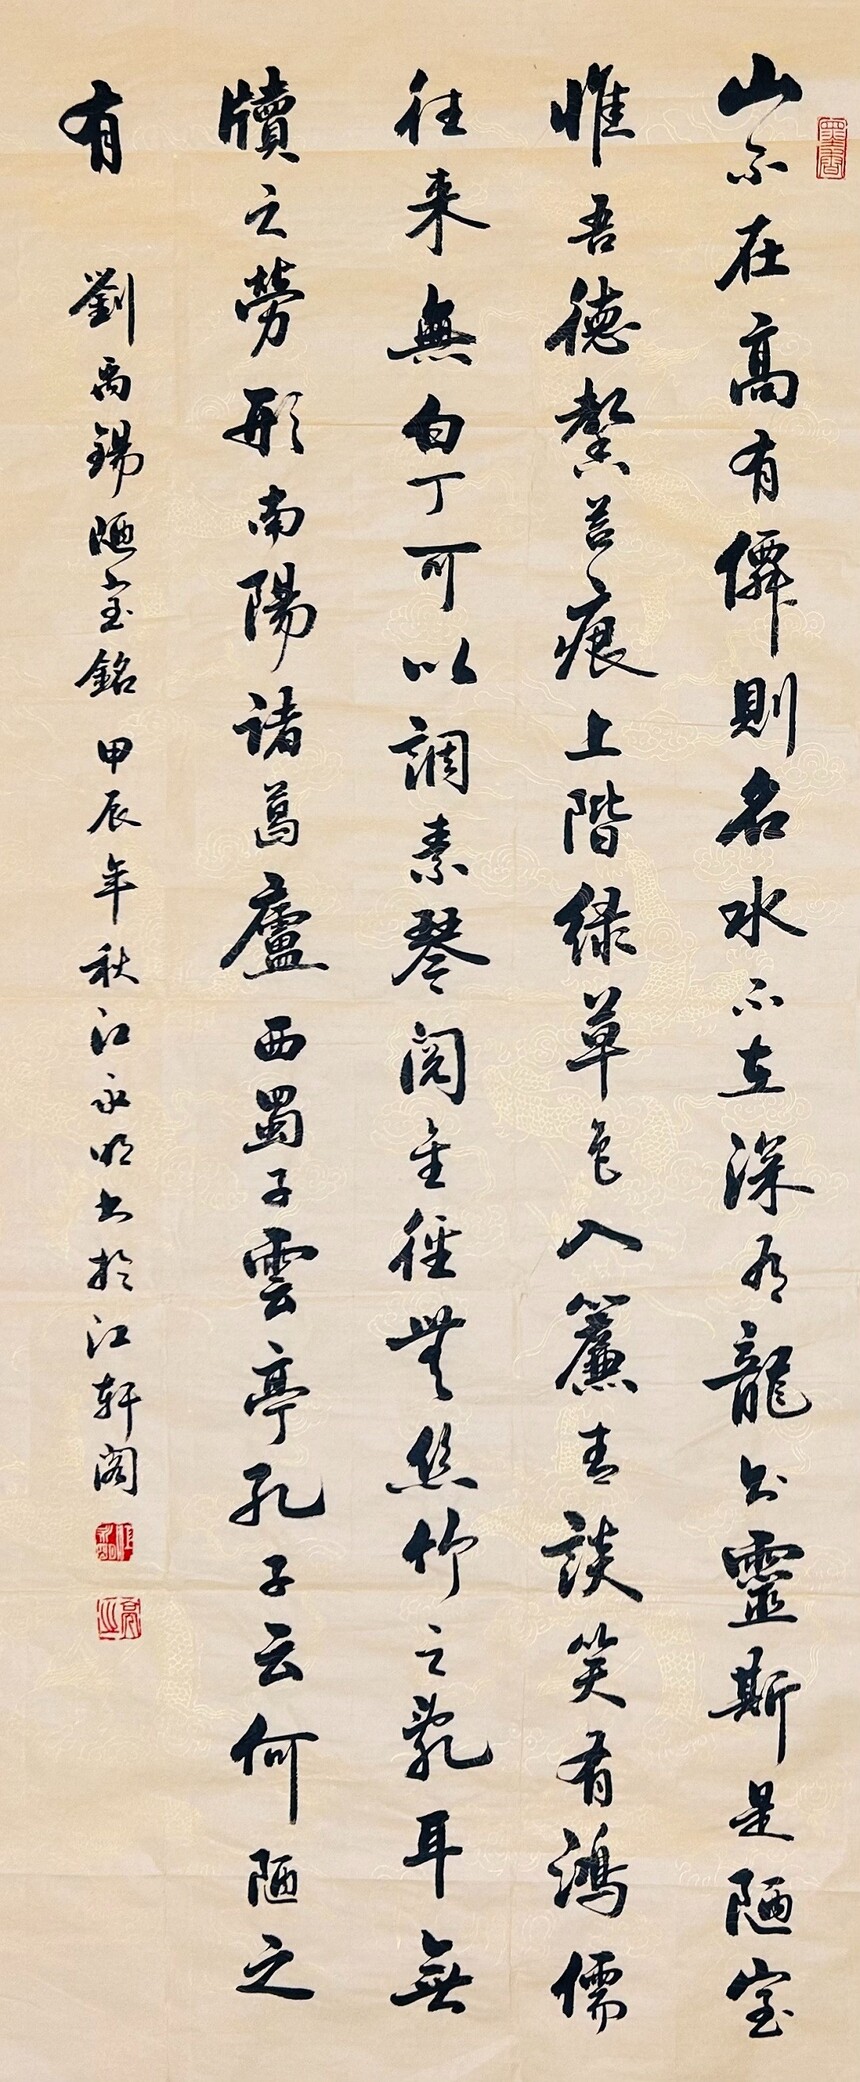 山不在高有僊則名水不在深有龍則靈斯是陋室
惟吾德馨苔痕上階緑草色入簾青談笑有鴻儒
往来無白丁可以調素琴閱金徑無絲竹之亂耳無
牘之勞形南陽諸葛廬西蜀子雲亭孔子云何陋之
有
劉禹錫陋室銘甲辰年秋江永明書於江軒阁